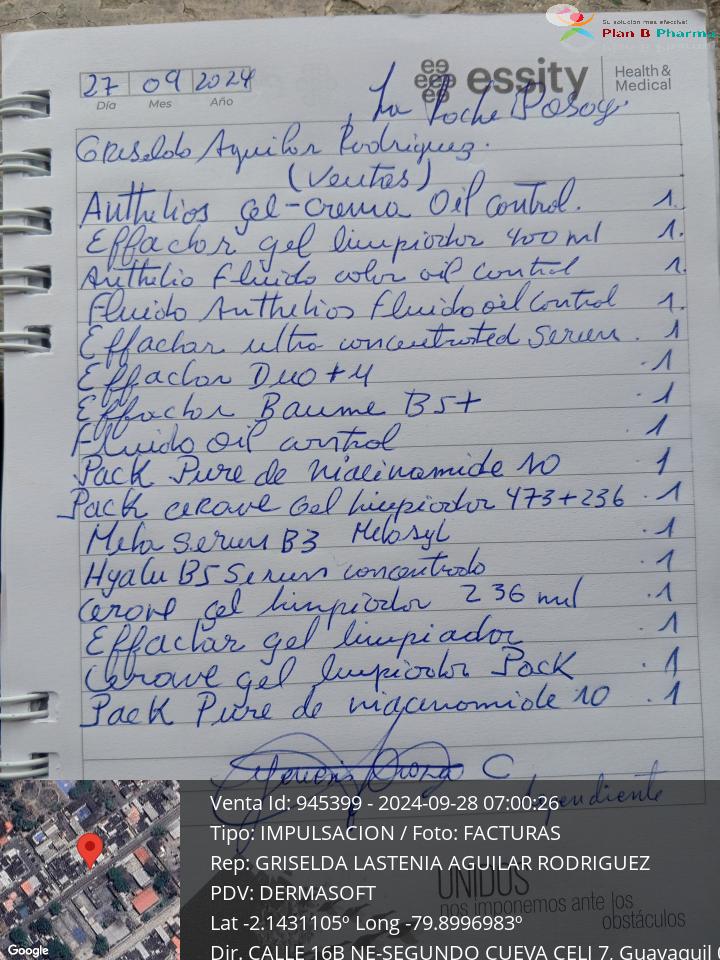 Su solución más efectiva!
Plan B Pharma
27 09 2024
Día Mes Año
essity Health & Medical
La Roche Posay.
Griselda Aguilar Rodriguez.
(Ventas)
Anthelios gel-crema Oil control. 1.
Effaclar gel limpiador 400 ml 1.
Anthelio Fluido color oil control 1.
Fluido Anthelios Fluido oil control 1.
Effaclar ultra concentrated Serum. 1
Effaclar Duo+M .1
Effaclar Baume B5+ 1
Fluido Oil control 1
Pack Pure de niacinamide 10 1
Pack cerave Gel limpiador 473+236 .1
Mela Serum B3 Melasyl .1
Hyalu B5 Serum concentrado .1
Cerave gel limpiador 236 ml .1
Effaclar gel limpiador .1
Cerave gel limpiador Pack .1
Pack Pure de niacinamide 10 .1
C
Dependiente
UNIDOS
nos imponemos ante los
obstáculos
Google
Venta Id: 945399 - 2024-09-28 07:00:26
Tipo: IMPULSACION / Foto: FACTURAS
Rep: GRISELDA LASTENIA AGUILAR RODRIGUEZ
PDV: DERMASOFT
Lat -2.1431105º Long -79.8996983º
Dir. CALLE 16B NE-SEGUNDO CUEVA CELI 7, Guayaquil